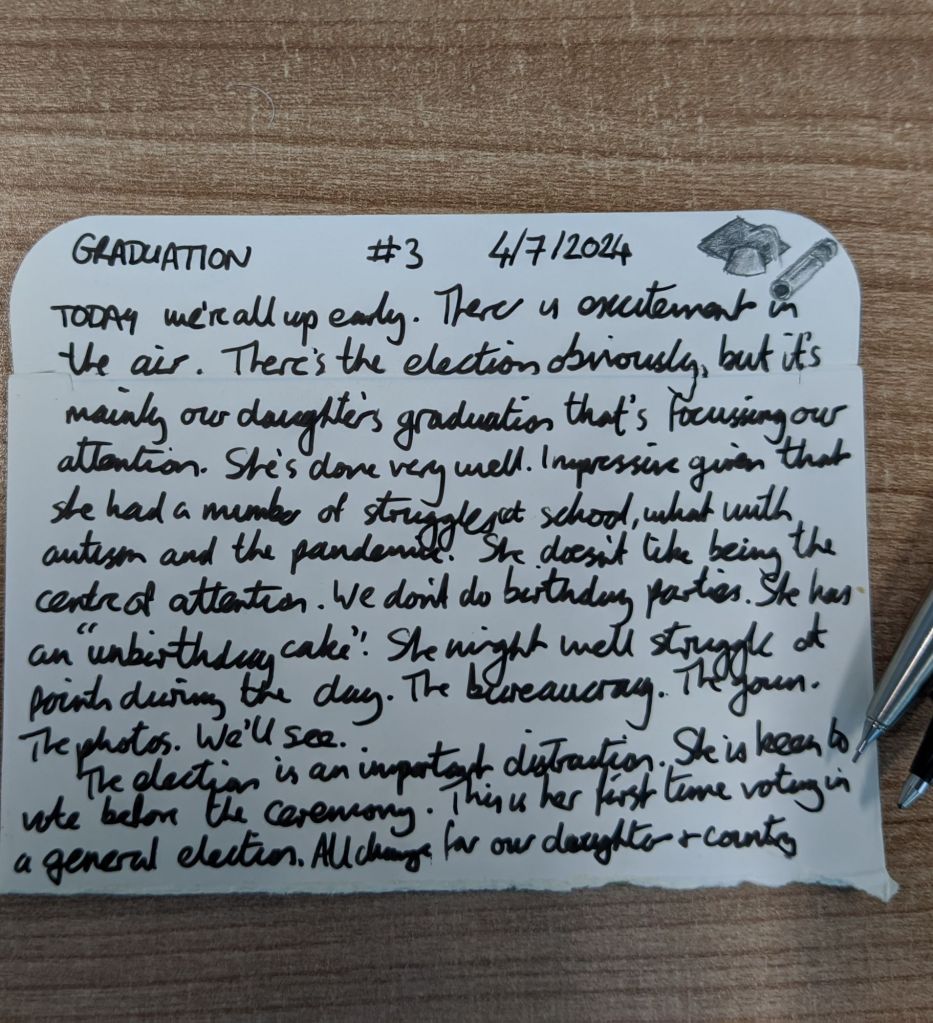 GRADUATION #3 4/7/2024
TODAY we're all up early. There is excitement in
the air. There's the election obviously, but it's
mainly our daughter's graduation that's focussing our
attention. She's done very well. Impressive given that
she had a number of struggles at school, what with
autism and the pandemic. She doesn't like being the
centre of attention. We don't do birthday parties. She has
an "unbirthday cake"! She might well struggle at
points during the day. The bureaucracy. The gown.
The photos. We'll see.
The election is an important distraction. She is keen to
vote before the ceremony. This is her first time voting in
a general election. All change for our daughter & country